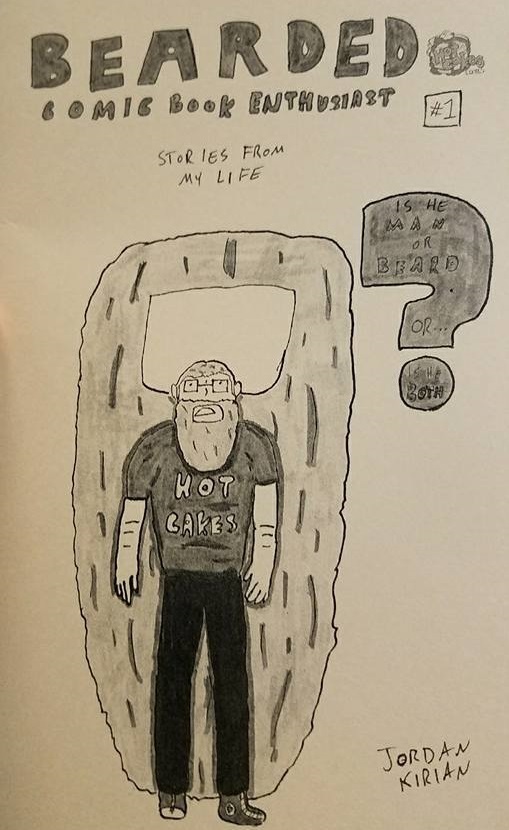 BEARDED
COMIC BOOK ENTHUSIAST
#1
STORIES FROM
MY LIFE
IS HE
MAN
OR
BEARD
OR...
IS HE
BOTH
HOT
CAKES
JORDAN
KIRIAN